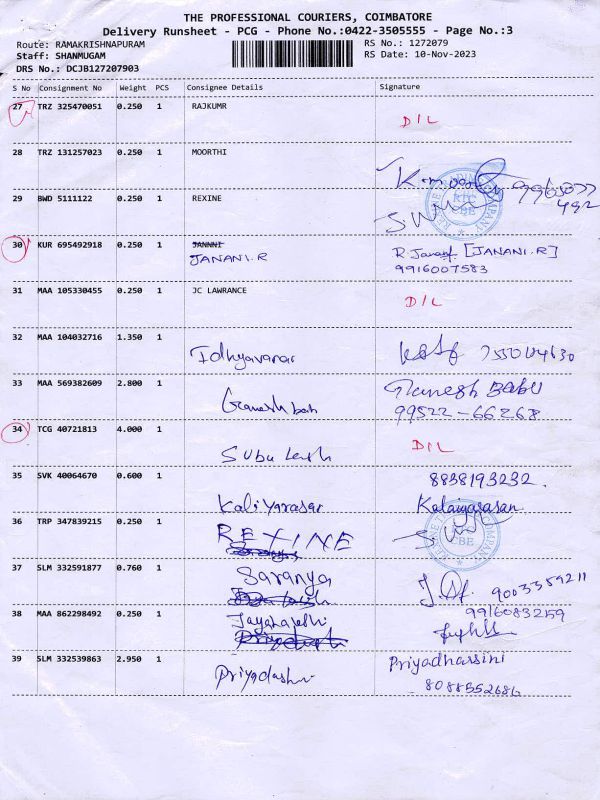 THE PROFESSIONAL COURIERS, COIMBATORE
Delivery Runsheet - PCG - Phone No.:0422-3505555 - Page No.:3
Route: RAMAKRISHNAPURAM RS No.: 1272079
Staff: SHANMUGAM RS Date: 10-Nov-2023
DRS No.: DCJB127207903
S No Consignment No Weight PCS Consignee Details Signature
27 TRZ 325470051 0.250 1 RAJKUMR
D I L
28 TRZ 131257023 0.250 1 MOORTHI
29 BWD 5111122 0.250 1 REXINE
30 KUR 695492918 0.250 1 JANNNI
JANANI.R R. [JANANI.R]
9916007583
31 MAA 105330455 0.250 1 JC LAWRANCE
D I L
32 MAA 104032716 1.350 1
33 MAA 569382609 2.800 1 Ganesh Babu
99522-66268
34 TCG 40721813 4.000 1
D I L
35 SVK 40064670 0.600 1 8838193232.
Kaliyarasar Kalaiyarasan
36 TRP 347839215 0.250 1 REXINE
37 SLM 332591877 0.760 1 Saranya
9003359211
38 MAA 862298492 0.250 1 9916083259
39 SLM 332539863 2.950 1 Priyadharsini
8088552686